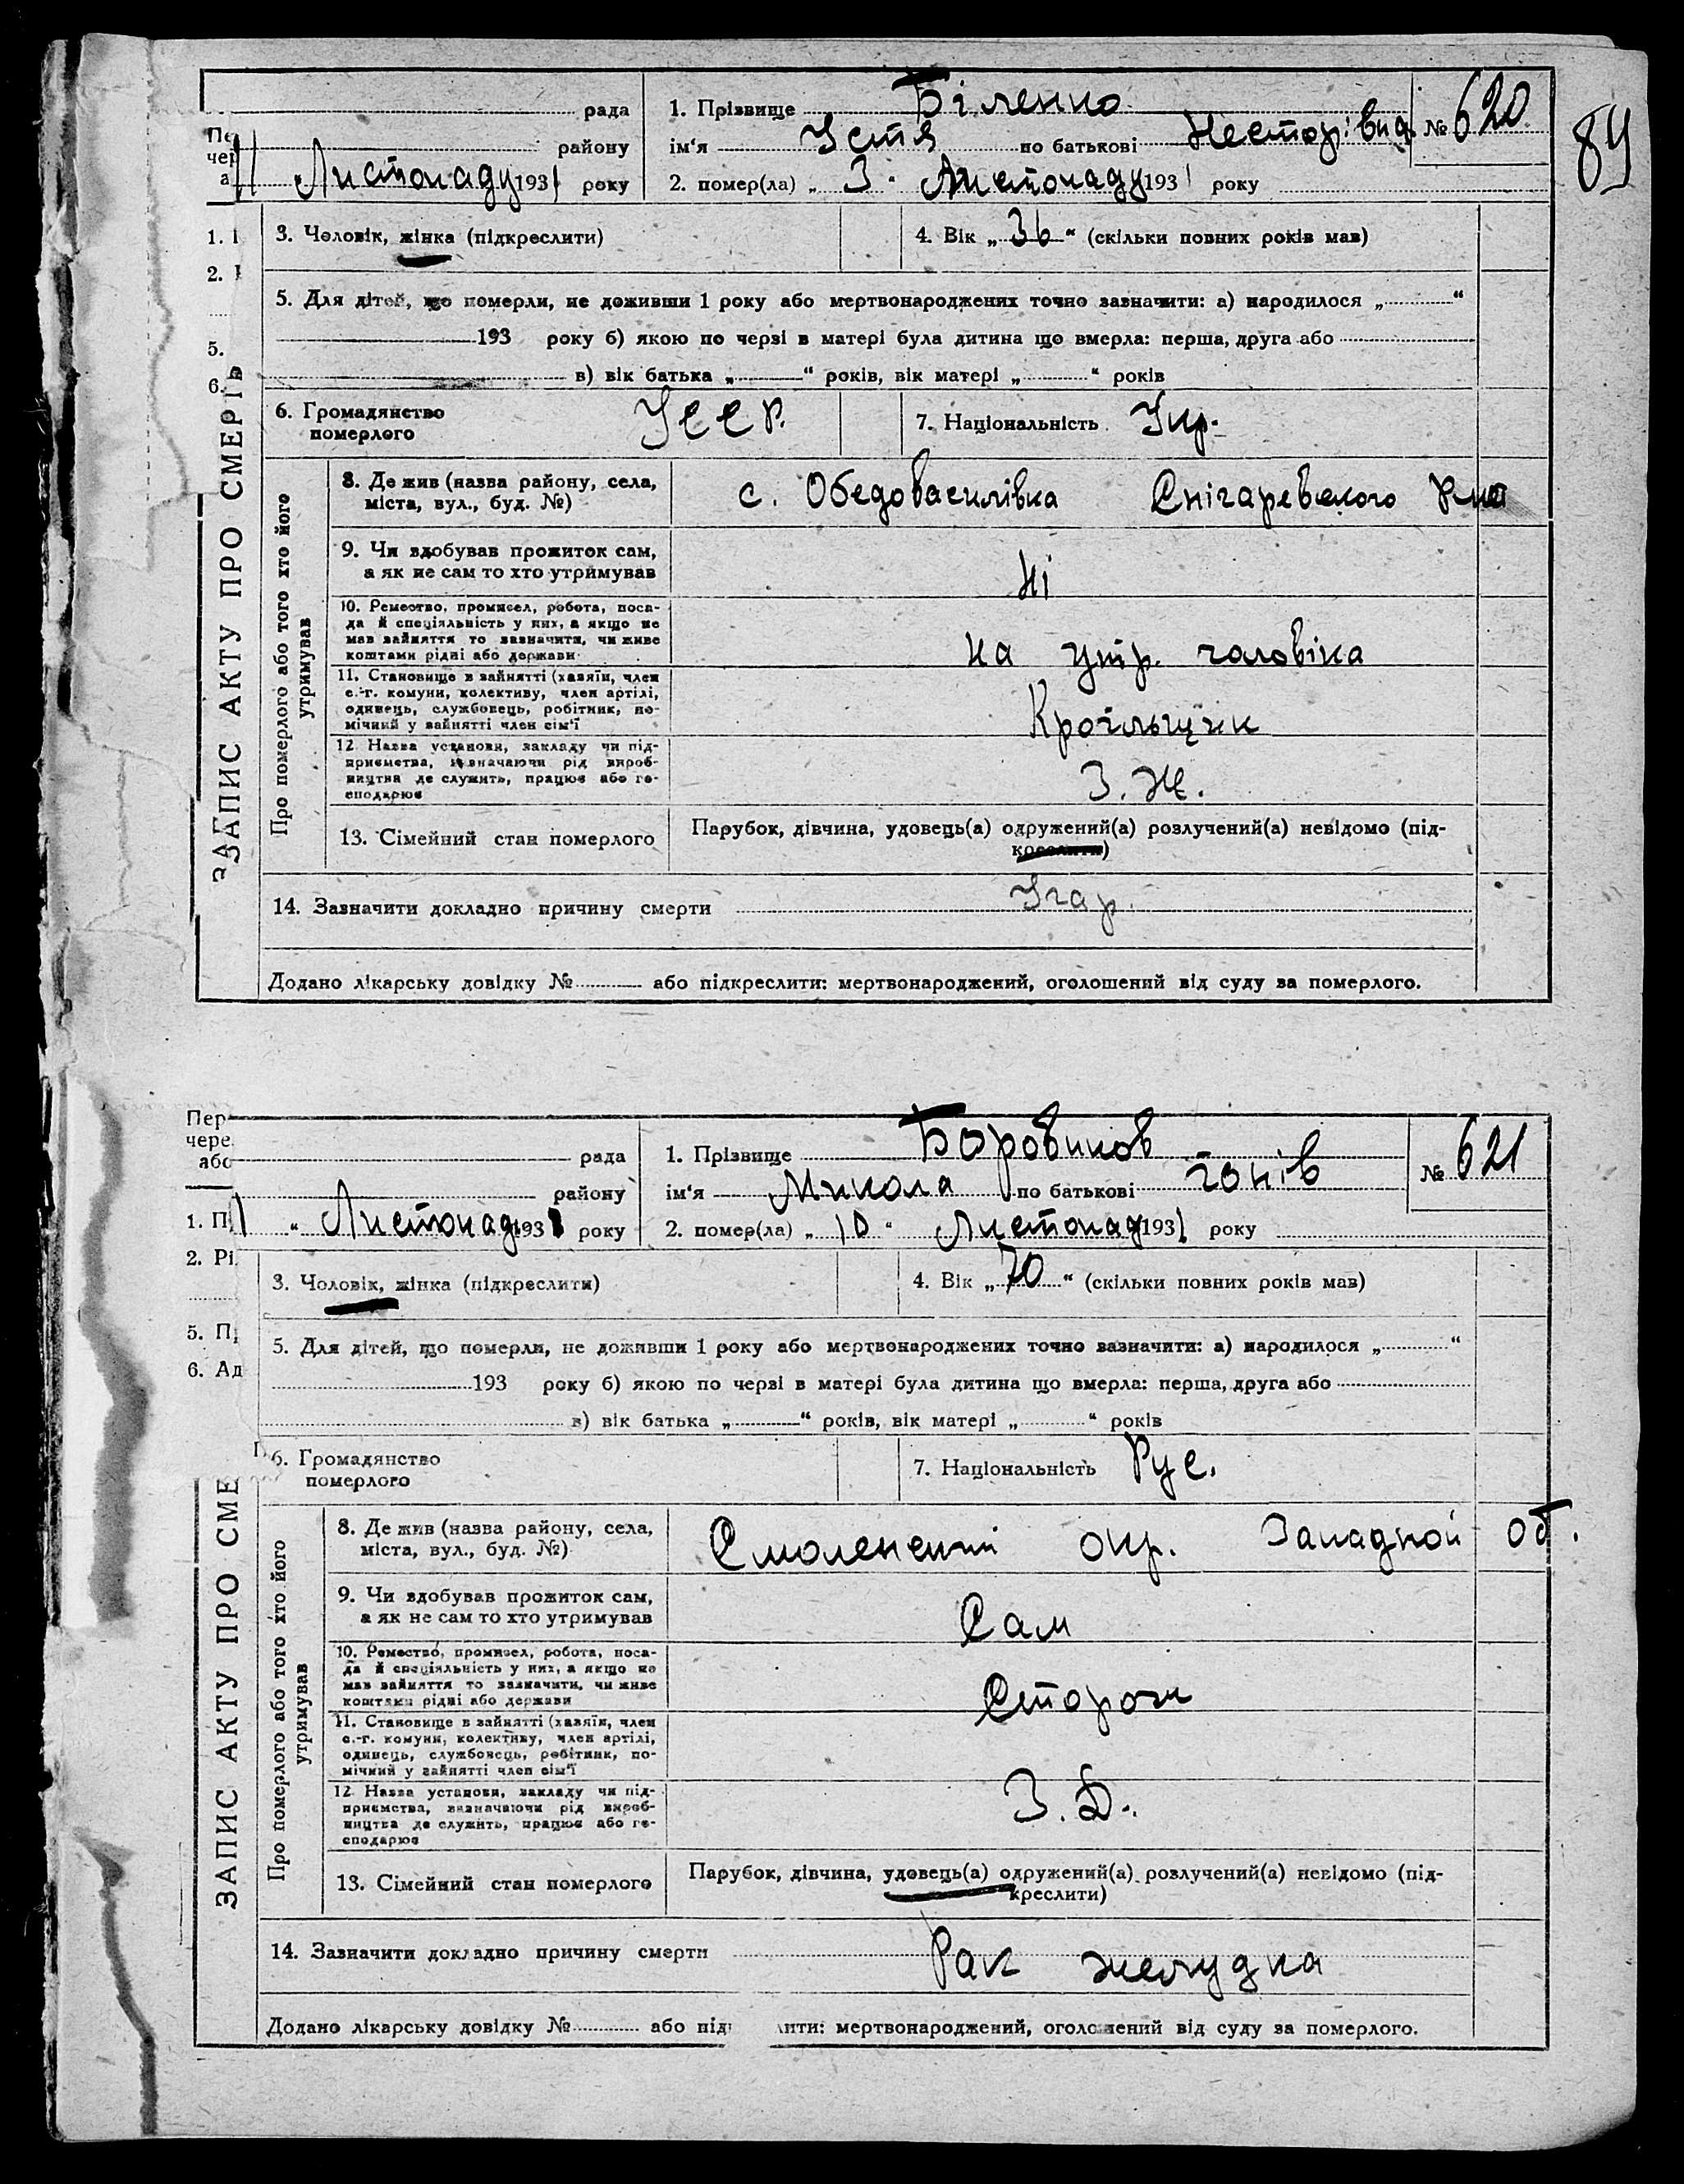 рада 1. Прізвище Біленко № 620 84
району ім'я Устя по батькові Несторівна
11 Листопаду 1931 року 2. помер(ла) „ 3 " Листопаду 1931 року
3. Чоловік, жінка (підкреслити) 4. Вік „ 36 " (скільки повних років мав)
5. Для дітей, що померли, не доживши 1 року або мертвонароджених точно зазначити: а) народилося „ "
193 року б) якою по черзі в матері була дитина що вмерла: перша, друга або
в) вік батька „ " років, вік матері „ " років
6. Громадянство померлого УССР. 7. Національність Укр.
ЗАПИС АКТУ ПРО СМЕРТЬ
Про померлого або того хто його утримував
8. Де жив (назва району, села, міста, вул., буд. №) с. Обєдовасилівка Снігаревского р-на
9. Чи здобував прожиток сам, а як не сам то хто утримував Ні
10. Ремество, промисел, робота, посада й спеціяльність у них, а якщо не мав зайняття то зазначити, чи живе коштами рідні або держави на утр. чоловіка
11. Становище в зайнятті (хазяїн, член с.-г. комуни, колективу, член артілі, одинець, службовець, робітник, помічний у зайнятті член сім'ї Кроільщик
12 Назва установи, закладу чи підприємства, зазначаючи рід виробництва де служить, працює або господарює З. Ж.
13. Сімейний стан померлого Парубок, дівчина, удовець(а) одружений(а) розлучений(а) невідомо (підкреслити)
14. Зазначити докладно причину смерти Угар.
Додано лікарську довідку № або підкреслити: мертвонароджений, оголошений від суду за померлого.
рада 1. Прізвище Боровиков № 621
району ім'я Микола по батькові Йонів
" Листопад 1931 року 2. помер(ла) „ 10 " Листопад 1931 року
3. Чоловік, жінка (підкреслити) 4. Вік „ 70 " (скільки повних років мав)
5. Для дітей, що померли, не доживши 1 року або мертвонароджених точно зазначити: а) народилося „ "
193 року б) якою по черзі в матері була дитина що вмерла: перша, друга або
в) вік батька „ " років, вік матері „ " років
6. Громадянство померлого 7. Національність Рус.
ЗАПИС АКТУ ПРО СМЕ
Про померлого або того хто його утримував
8. Де жив (назва району, села, міста, вул., буд. №) Смоленский окр. Западной об.
9. Чи здобував прожиток сам, а як не сам то хто утримував Сам
10. Ремество, промисел, робота, посада й спеціяльність у них, а якщо не мав зайняття то зазначити, чи живе коштами рідні або держави Сторож
11. Становище в зайнятті (хазяїн, член с.-г. комуни, колективу, член артілі, одинець, службовець, робітник, помічний у зайнятті член сім'ї
12 Назва установи, закладу чи підприємства, зазначаючи рід виробництва де служить, працює або господарює З. Д.
13. Сімейний стан померлого Парубок, дівчина, удовець(а) одружений(а) розлучений(а) невідомо (підкреслити)
14. Зазначити докладно причину смерти Рак желудка
Додано лікарську довідку № або під лити: мертвонароджений, оголошений від суду за померлого.